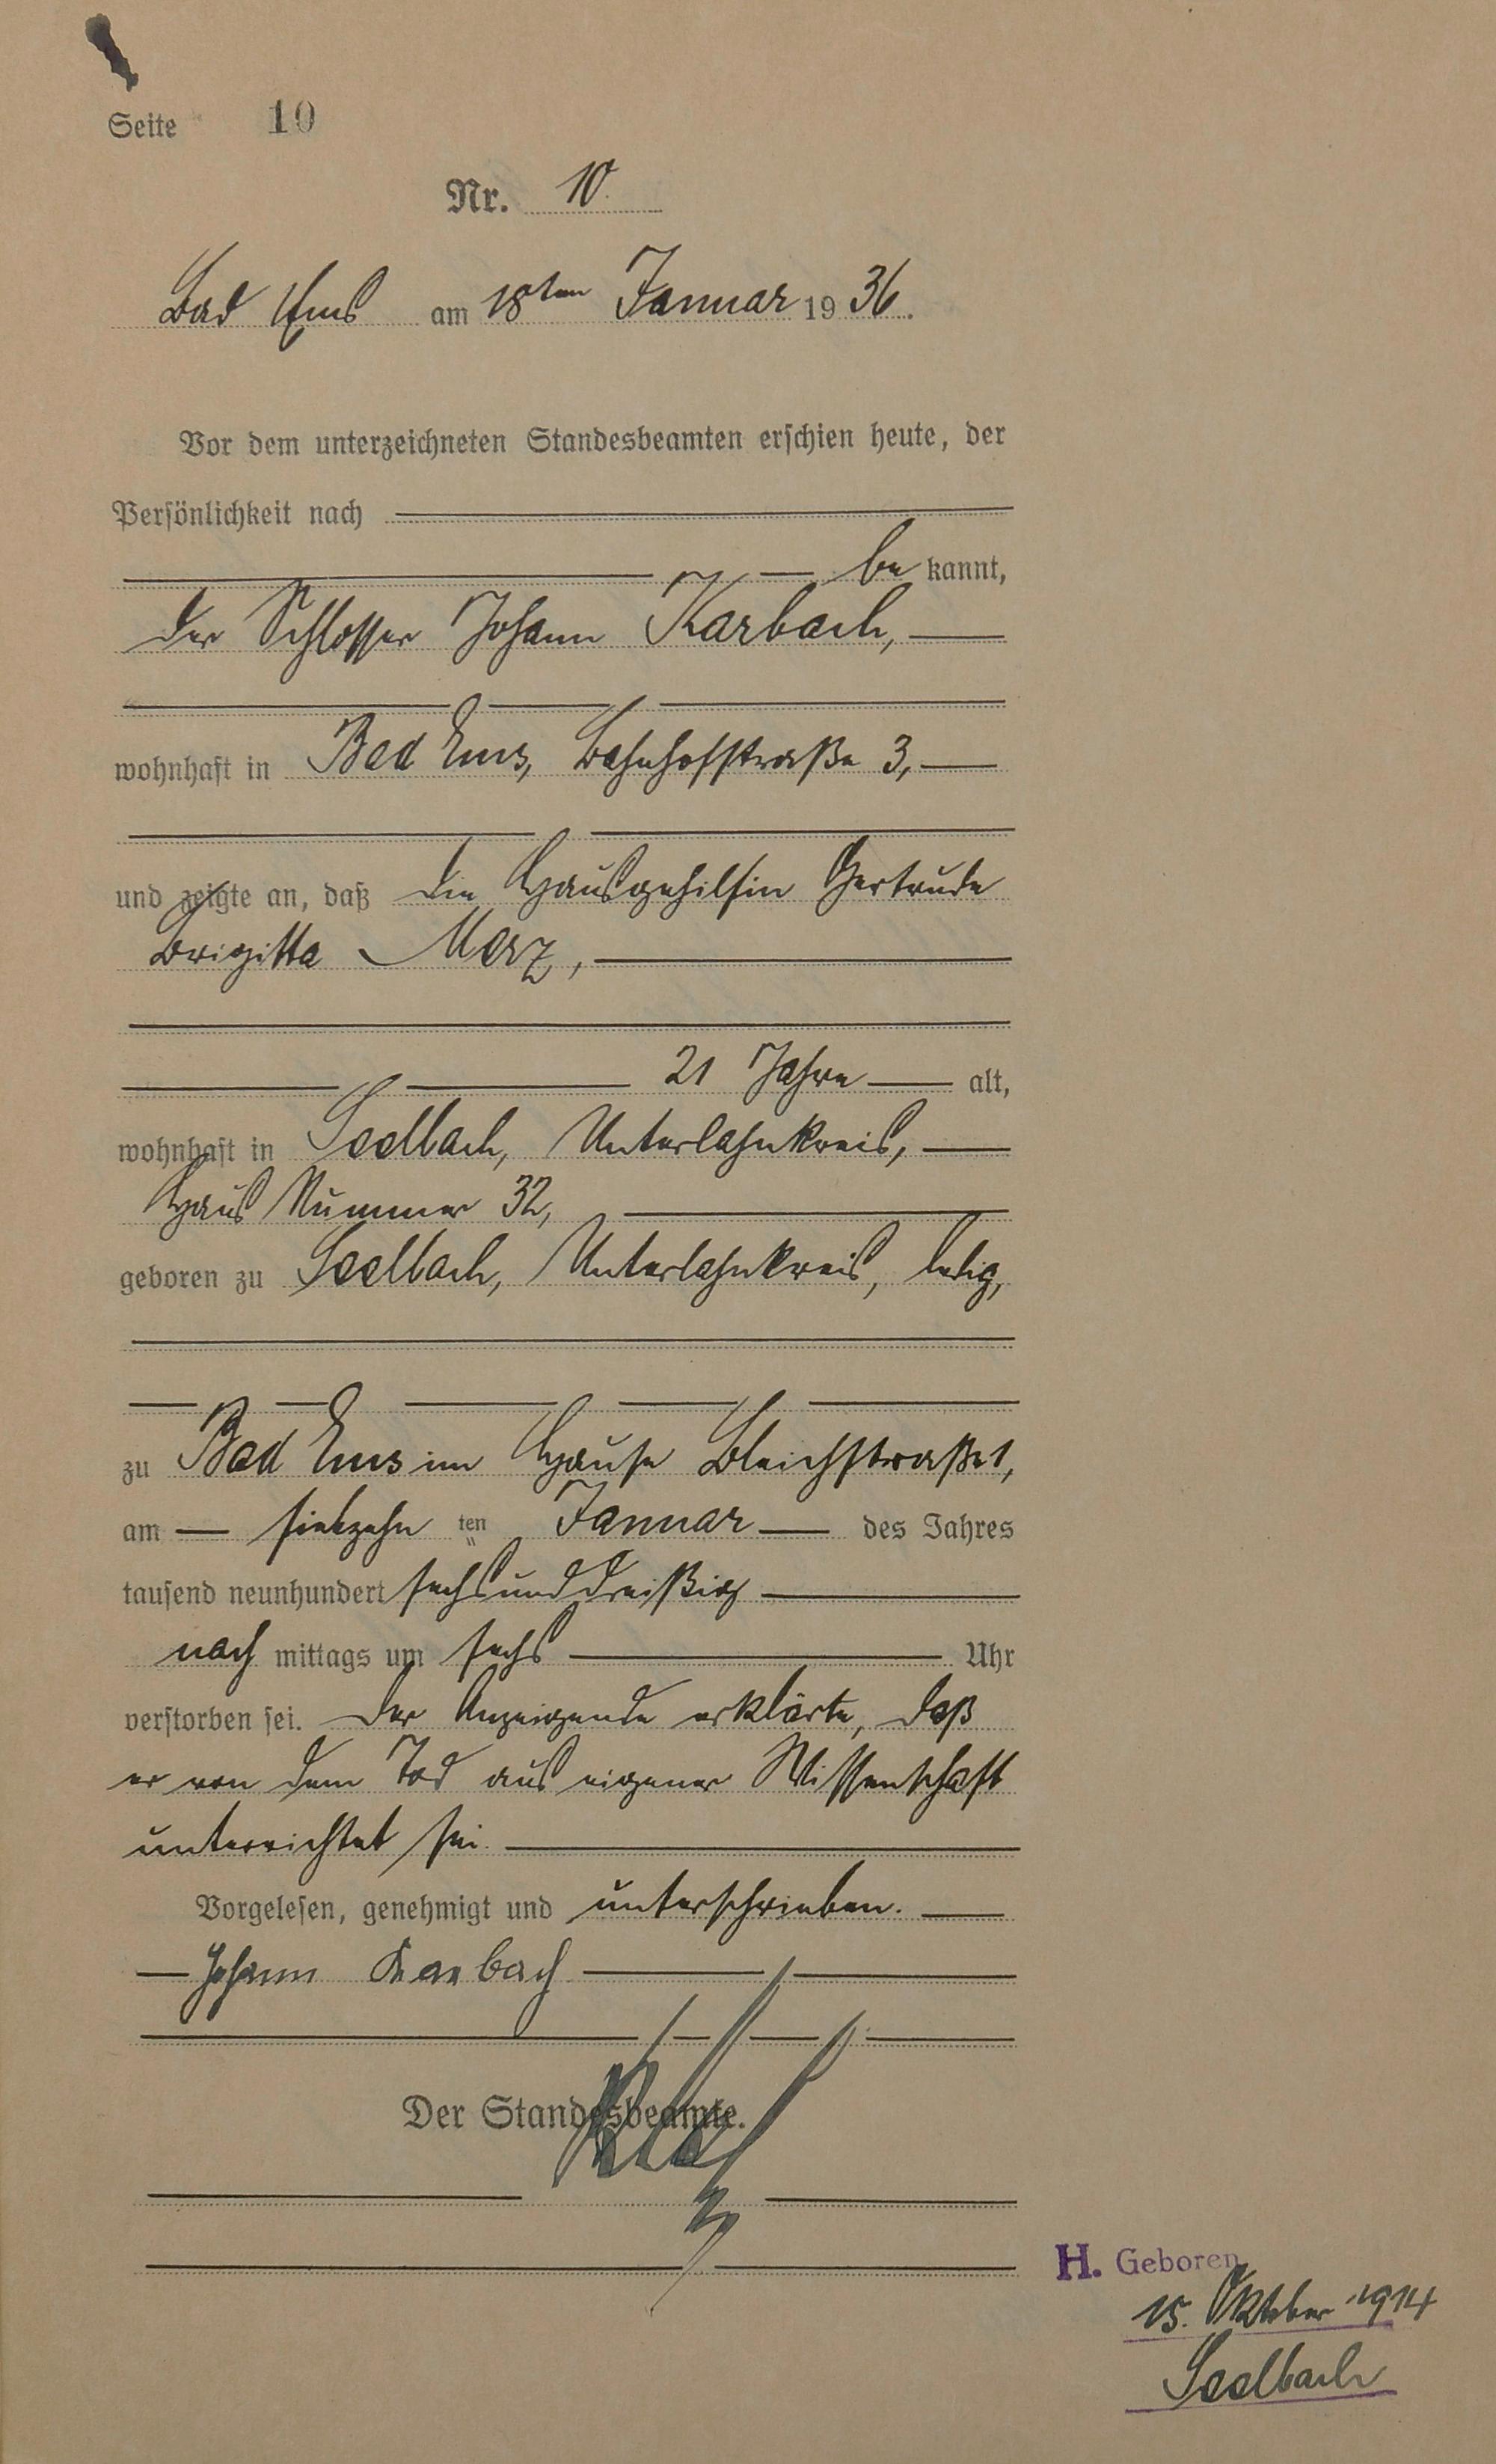 Seite 10
Nr. 10.
Bad Ems am 18ten Januar 1936.
Vor dem unterzeichneten Standesbeamten erschien heute, der
Persönlichkeit nach
be kannt,
der Schlosser Johann Karbach,
wohnhaft in Bad Ems, Bahnhofstraße 3,
und zeigte an, daß die Hausgehilfin Gertrude
Brigitta Merz,
21 Jahre alt,
wohnhaft in Seelbach, Unterlahnkreis,
Haus Nummer 32,
geboren zu Seelbach, Unterlahnkreis, ledig,
zu Bad Ems im Hause Bleichstraße 1,
am siebzehn ten Januar des Jahres
tausend neunhundert sechsunddreißig
nach mittags um sechs Uhr
verstorben sei. Der Anzeigende erklärte, daß
er von dem Tod aus eigener Wissenschaft
unterrichtet sei.
Vorgelesen, genehmigt und unterschrieben.
Johann Karbach
Der Standesbeamte.
H. Geboren
15. Oktober 1914
Seelbach